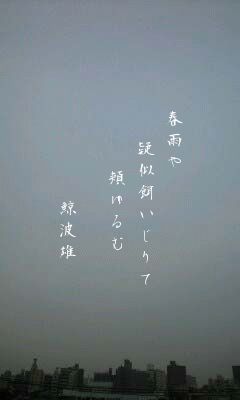 春雨や
疑似餌いじりて
頬ゆるむ
鯨波雄